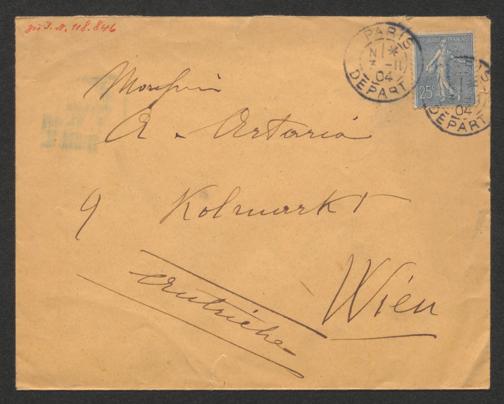 118.846
PARIS
7 - 11
04
DEPART
25
04
DEPART
Monsieur
A. Artaria
9 Kolmarkt
Wien
Autriche